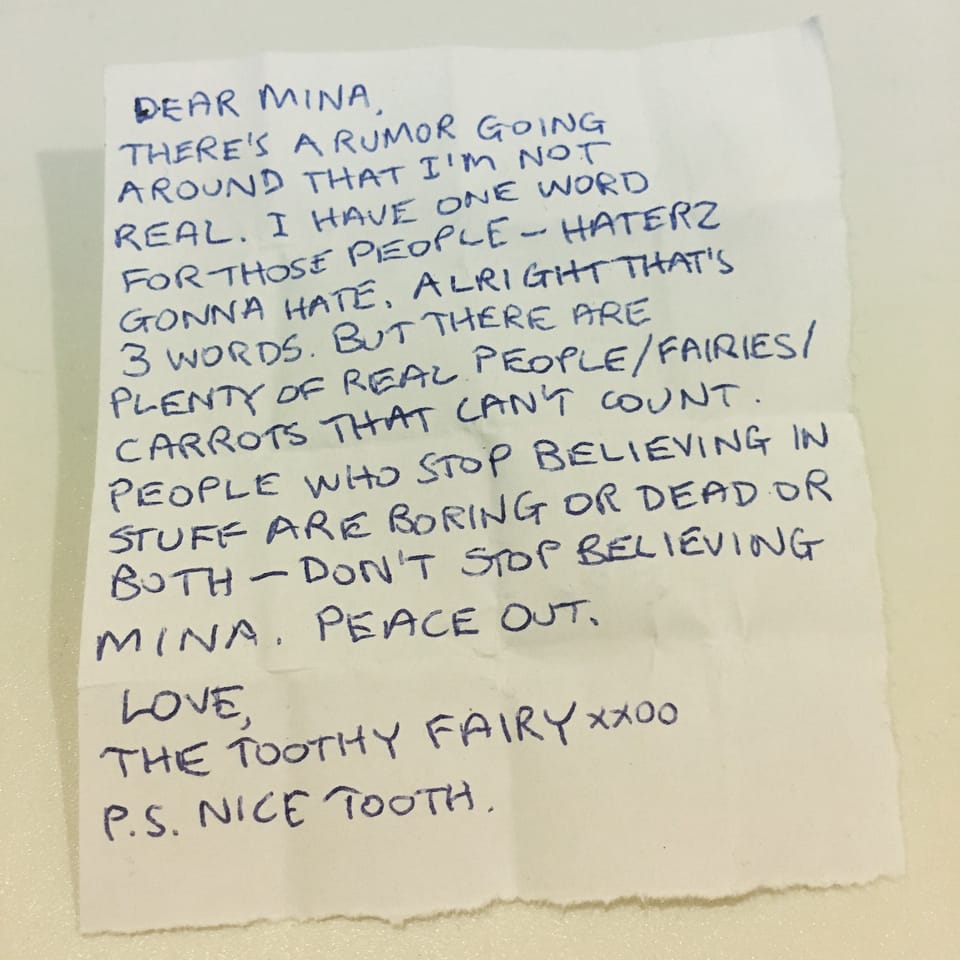 DEAR MINA,
THERE'S A RUMOR GOING
AROUND THAT I'M NOT
REAL. I HAVE ONE WORD
FOR THOSE PEOPLE - HATERZ
GONNA HATE. ALRIGHT THAT'S
3 WORDS. BUT THERE ARE
PLENTY OF REAL PEOPLE/FAIRIES/
CARROTS THAT CAN'T COUNT.
PEOPLE WHO STOP BELIEVING IN
STUFF ARE BORING OR DEAD OR
BOTH - DON'T STOP BELIEVING
MINA. PEACE OUT.
LOVE,
THE TOOTHY FAIRY xxoo
P.S. NICE TOOTH.